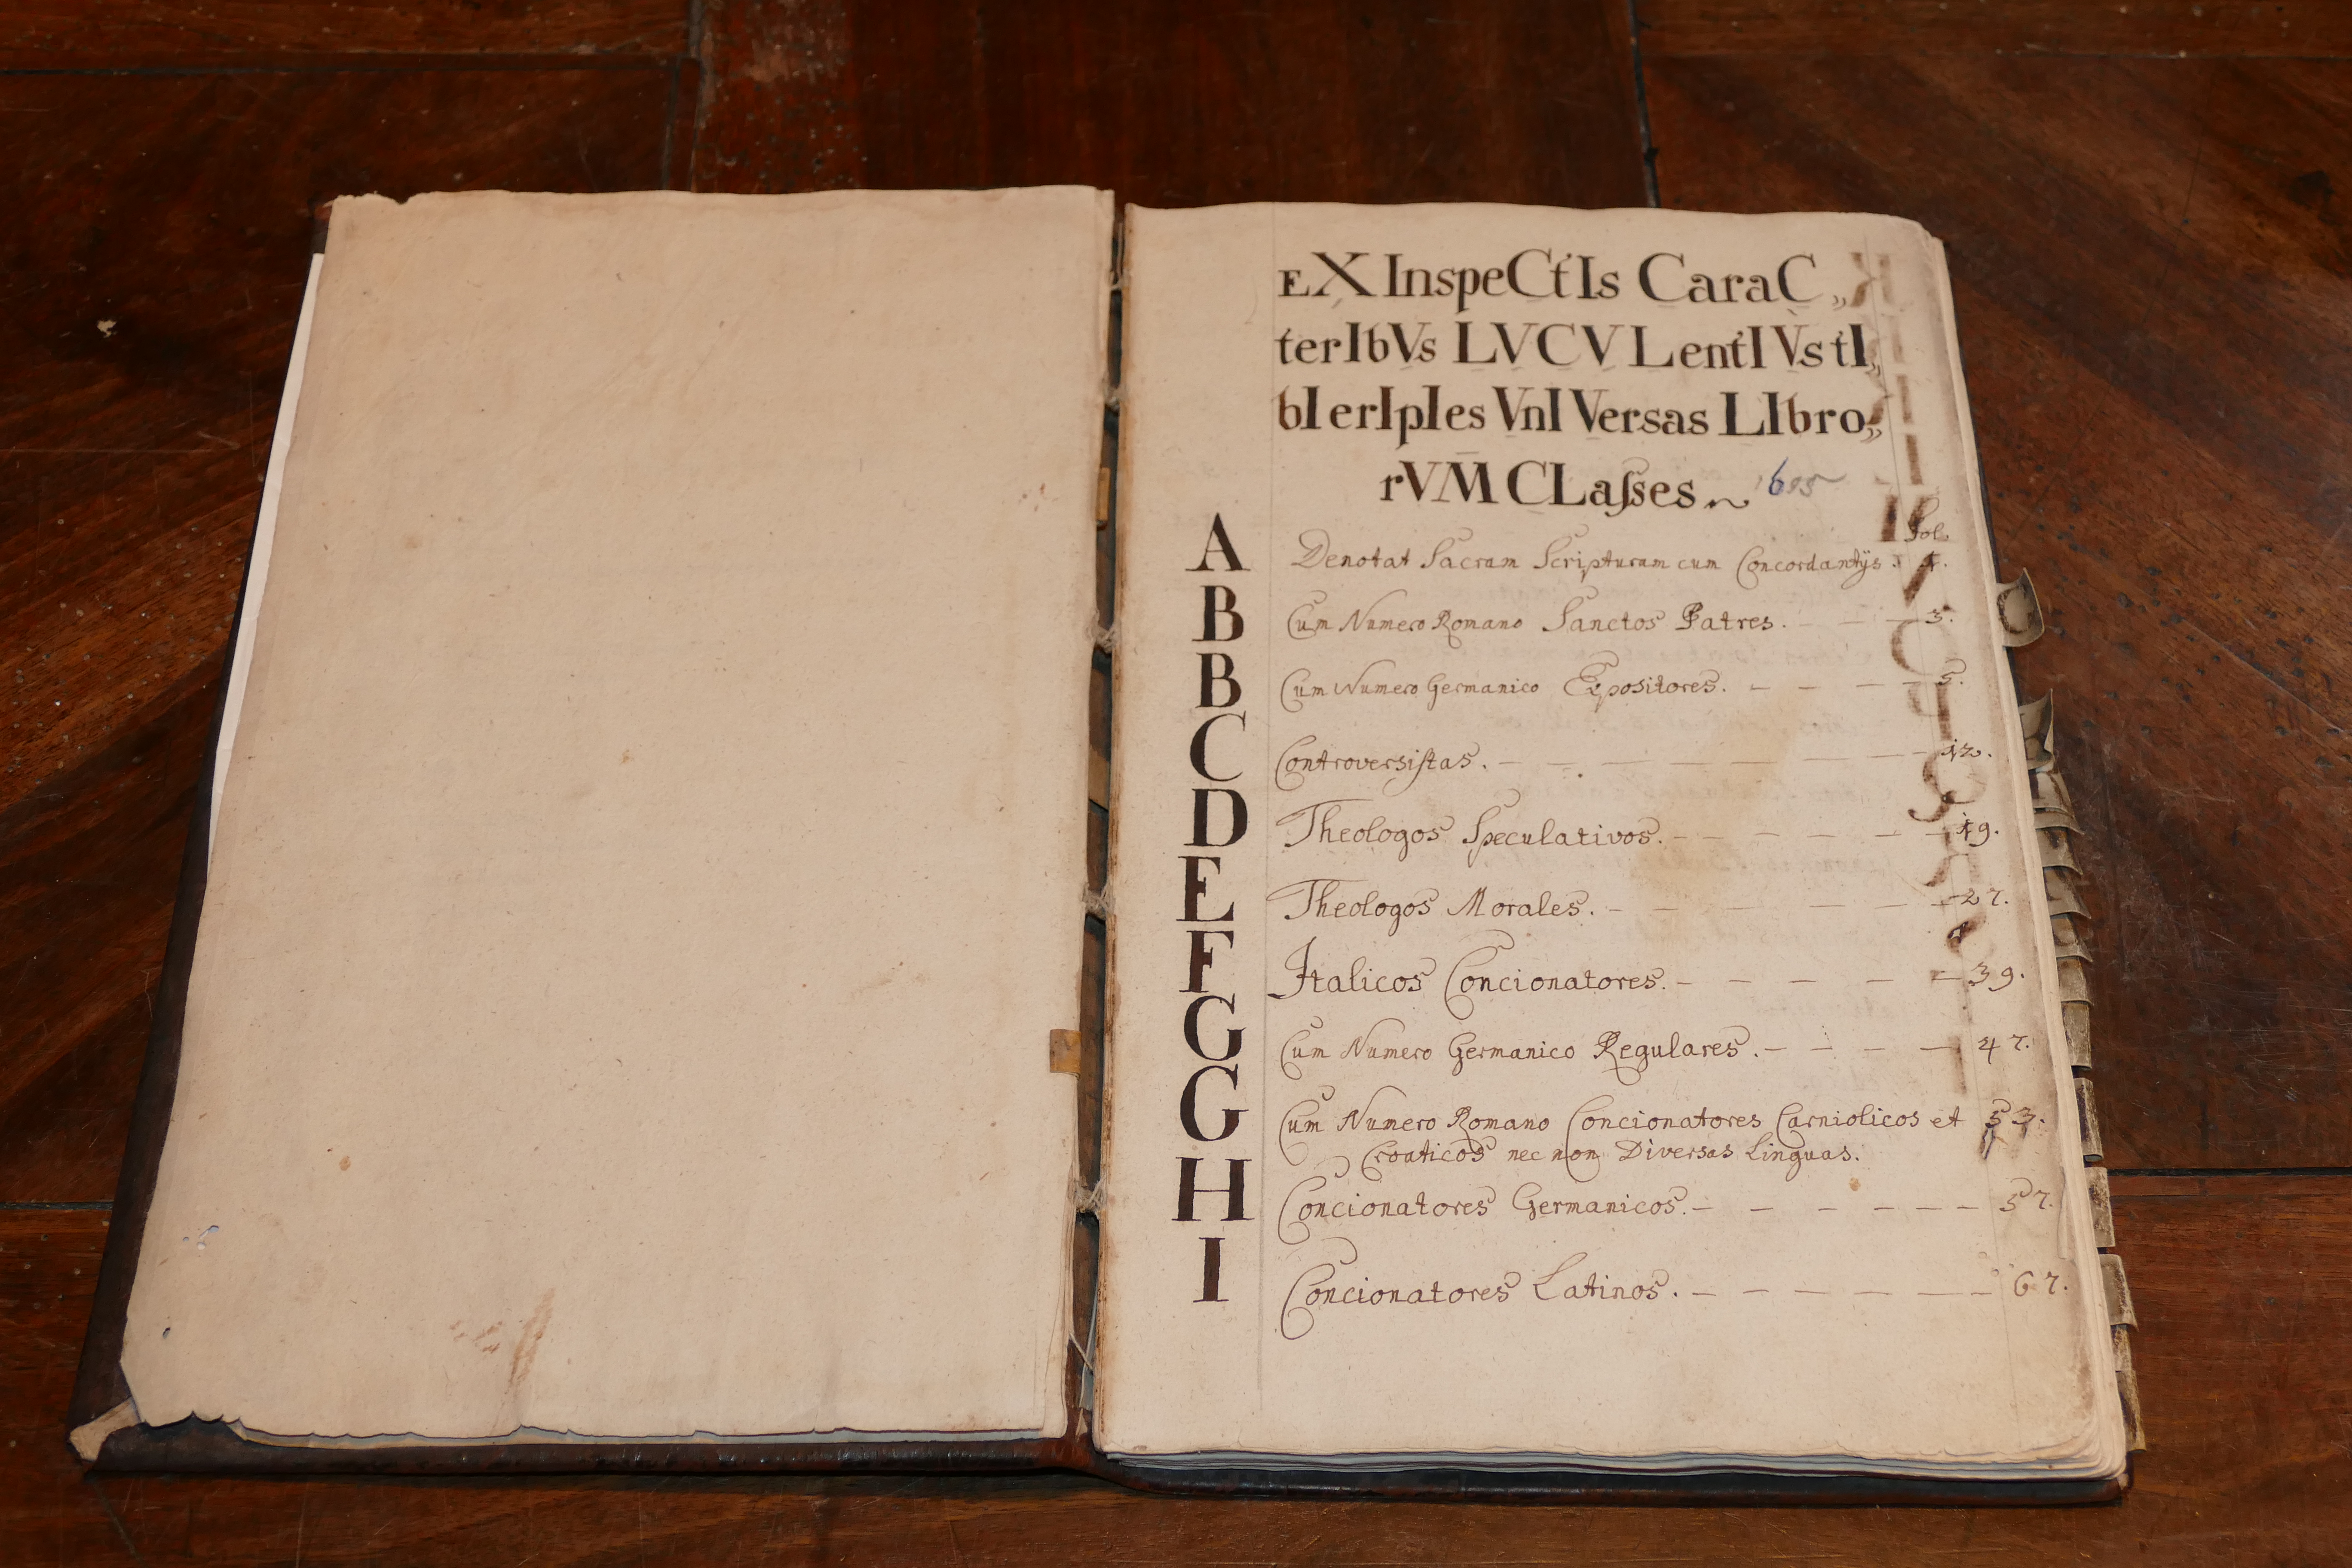 EX InspeCtIs CaraC„
terIbVs LVCVLentIVs tI„
bI erIpIes VnIVersas LIbro„
rVM CLaſses 1695
Fol.
A Denotat Sacram Scripturam cum Concordantijs. 1.
B Cum Numero Romano Sanctos Patres. — — — 3.
B Cum Numero Germanico Expositores. — — — — 5.
C Controversiſtas. — — — — — — — — 12.
D Theologos Speculativos. — — — — — — 19.
E Theologos Morales. — — — — — — 27.
F Italicos Concionatores. — — — — — 39.
G Cum Numero Germanico Regulares. — — — — 47.
G Cum Numero Romano Concionatores Carniolicos et 53.
Croaticos nec non Diversas Linguas.
H Concionatores Germanicos. — — — — — — 57.
I Concionatores Latinos. — — — — — — 67.